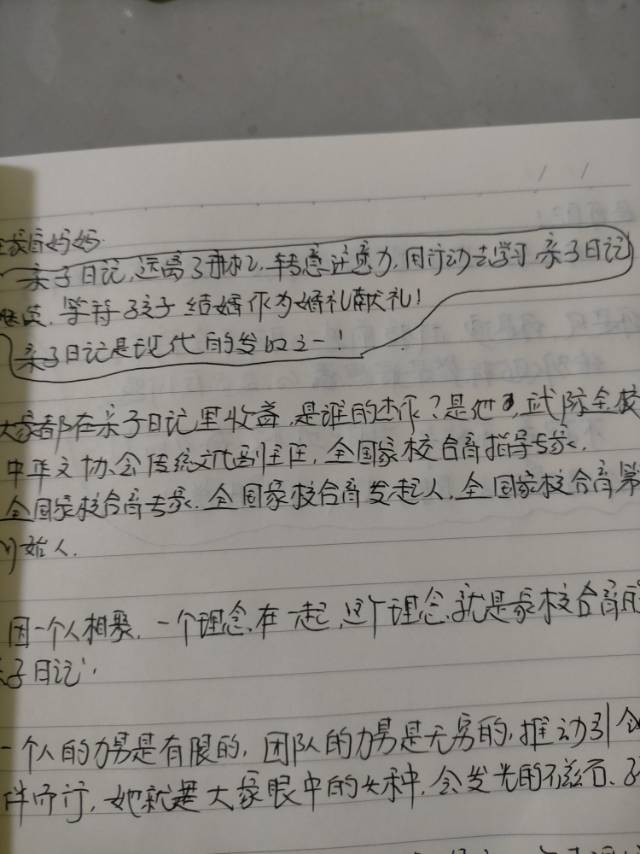 妈妈.
亲子日记,远离了手机,转意注意力,用行动去学习.亲子日记
等待孩子结婚作为婚礼献礼!
亲子日记是现代的发明之一!
大家都在亲子日记里收益,是谁的杰作?是他,武陟全
中华文协会传统文化副主任,全国家校合育指导专家.
全国家校合育专家.全国家校合育发起人.全国家校合育第
始人.
因一个人相聚.一个理念.在一起,这个理念.就是家校合育
子日记'.
一个人的力量是有限的,团队的力量是无穷的,推动引
伴而行,她就是大家眼中的女神,会发光的磁石、